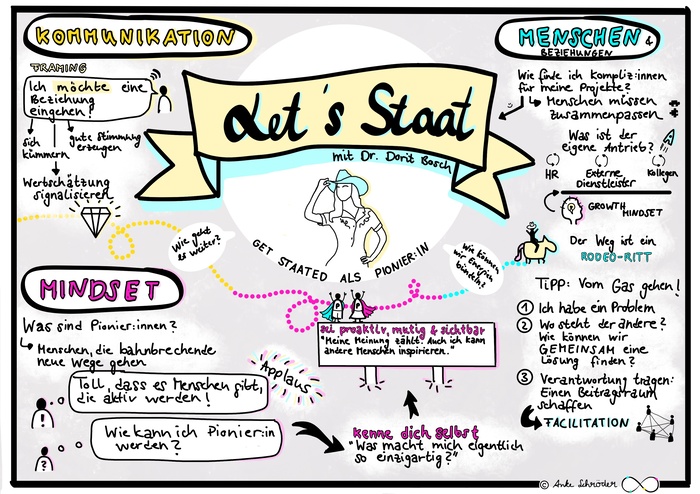 KOMMUNIKATION
FRAMING
Ich möchte eine
Beziehung
eingehen!
sich
kümmern
gute Stimmung
erzeugen
Wertschätzung
signalisieren
Let's Staat
mit Dr. Dorit Bosch
GET STAATED ALS PIONIER:IN
Wie geht
es weiter?
Wie können
wir Energien
bündeln?
MENSCHEN &
BEZIEHUNGEN
Wie finde ich Kompliz:innen
für meine Projekte?
Menschen müssen
zusammenpassen
Was ist der
eigene Antrieb?
HR
Externe
Dienstleister
Kollegen
GROWTH MINDSET
Der Weg ist ein
RODEO-RITT
TIPP: Vom Gas gehen!
1 Ich habe ein Problem
2 Wo steht der andere?
Wie können wir
GEMEINSAM eine
Lösung finden?
3 Verantwortung tragen:
Einen Beitragsraum
schaffen
FACILITATION
MINDSET
Was sind Pionier:innen?
Menschen, die bahnbrechende
neue Wege gehen
Toll, dass es Menschen gibt,
die aktiv werden!
Applaus
!
Wie kann ich Pionier:in
werden?
?
P P
sei proaktiv, mutig & sichtbar
"Meine Meinung zählt. Auch ich kann
andere Menschen inspirieren."
kenne dich selbst
"Was macht mich eigentlich
so einzigartig?"
© Anke Schröder